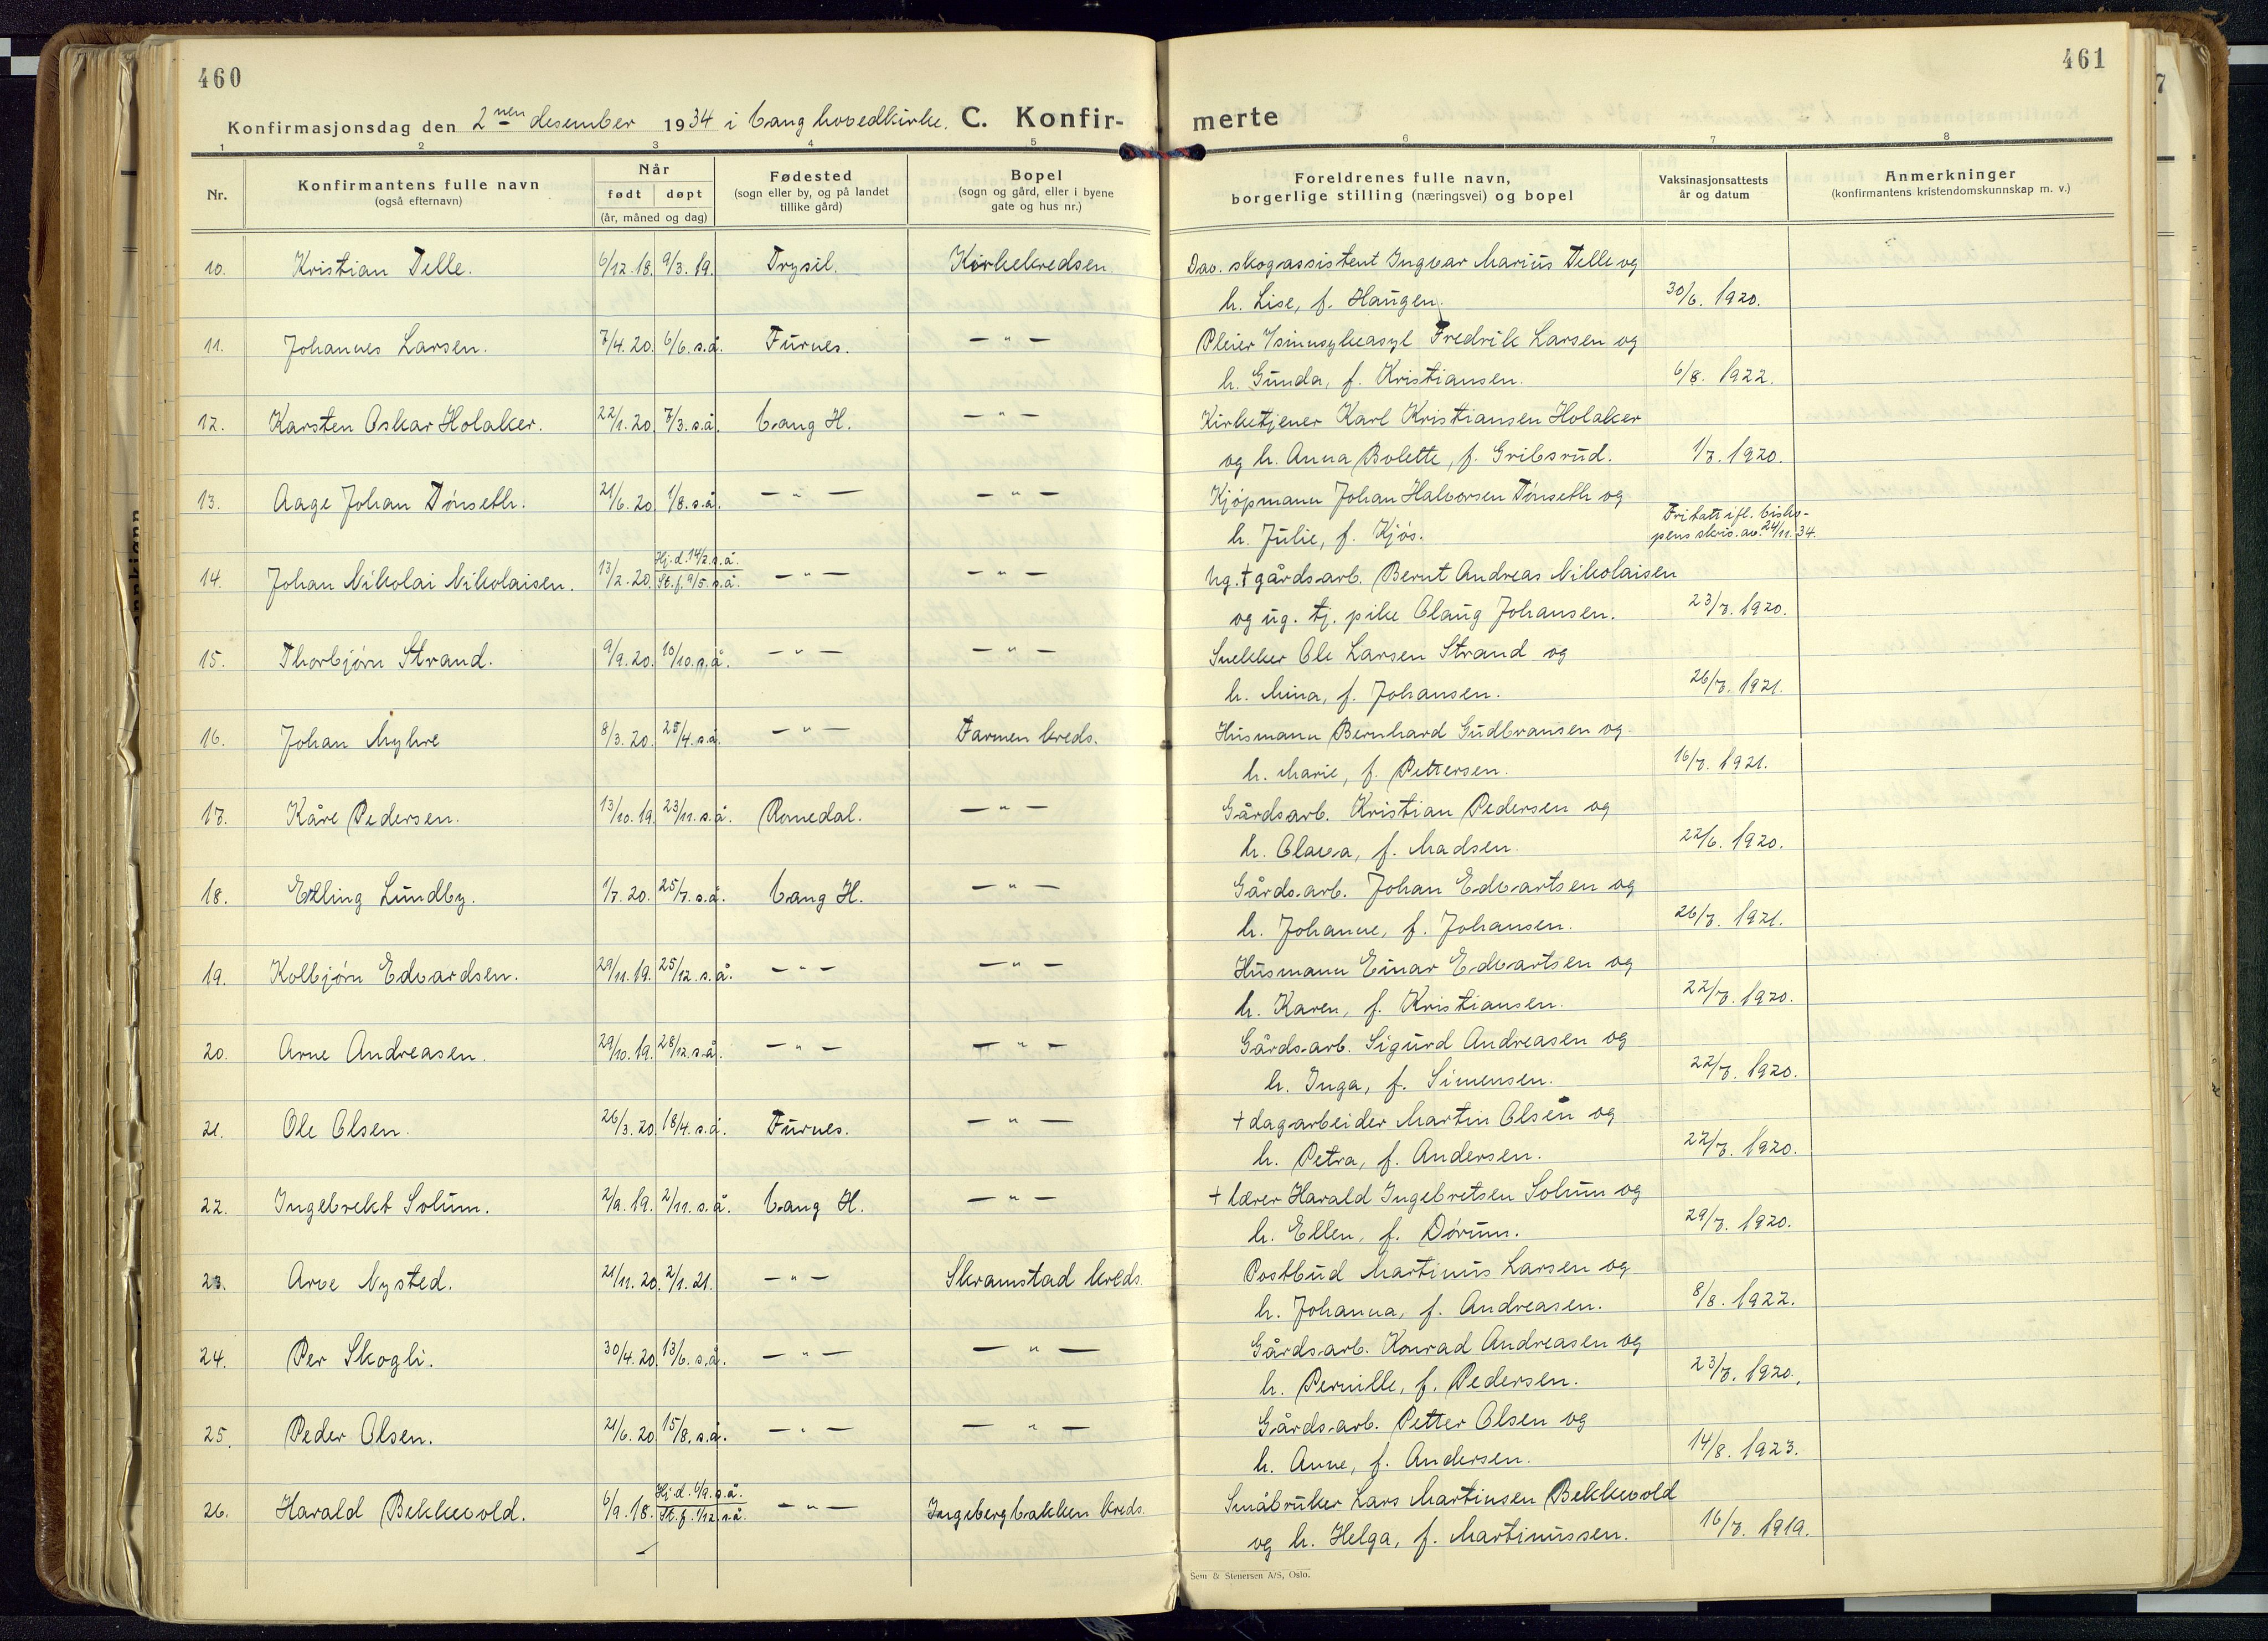 460
Konfirmasjonsdag den 2nen desember 1934 i Vang hovedkirke. C. Konfir-
1 2 3 4 5
Nr.
Konfirmantens fulle navn
(også efternavn)
Når
født døpt
(år, måned og dag)
Fødested
(sogn eller by, og på landet
tillike gård)
Bopel
(sogn og gård, eller i byene
gate og hus nr.)
10. Kristian Telle. 6/12.18. 9/3.19. Trysil. Kirkekredsen
11. Johannes Larsen. 7/4.20. 6/6.s.å. Furnes. — " —
12. Karsten Oskar Holaker. 22/1.20. 7/3.s.å. Vang H. — " —
13. Aage Johan Tønseth. 21/6.20. 1/8.s.å. — " — — " —
14. Johan Nikolai Nikolaisen. 13/2.20. Hj.d. 14/2.s.å. St.f. 9/5.s.å. — " — — " —
15. Thorbjørn Strand. 9/9.20. 10/10.s.å. — " — — " —
16. Johan Myhre 8/3.20. 25/4.s.å. — " — Farmen kreds.
17. Kåre Pedersen. 13/10.19. 23/11.s.å. Romedal. — " —
18. Erling Lundby. 1/7.20. 25/7.s.å. Vang H. — " —
19. Kolbjørn Edvardsen. 29/11.19. 25/12.s.å. — " — — " —
20. Arne Andreasen. 29/10.19. 28/12.s.å. — " — — " —
21. Ole Olsen. 26/3.20. 18/4.s.å. Furnes. — " —
22. Ingebrekt Solum. 2/9.19. 2/11.s.å. Vang H. — " —
23. Arve Nysted. 21/11.20. 2/1.21. — " — Skramstad kreds
24. Per Skogli. 30/4.20. 13/6.s.å. — " — — " —
25. Peder Olsen. 21/6.20. 15/8.s.å. — " — — " —
26. Harald Bekkevold. 6/9.18. Hj.d. 6/9.s.å. St.f. 1/12.s.å. — " — Ingebergbakken kreds
461
merte
6 7 8
Foreldrenes fulle navn,
borgerlige stilling (næringsvei) og bopel
Vaksinasjonsattests
år og datum
Anmerkninger
(konfirmantens kristendomskunnskap m. v.)
Dav. skogassistent Ingvar Marius Telle og
h. Lise, f. Haugen. 30/6. 1920.
Pleier v/sinnsykeasyl Fredrik Larsen og
h. Gunda, f. Kristiansen. 6/8. 1922.
Kirketjener Karl Kristiansen Holaker
og h. Anna Bolette, f. Gribsrud. 1/7. 1920.
Kjøpmann Johan Halvorsen Tønseth og
h. Julie, f. Kjøs. Fritatt ifl. bisko-
pens skriv. av. 24/11.34.
Ug. † gårdsarb. Bernt Andreas Nikolaisen
og ug. tj. pike Olaug Johansen. 23/7. 1920.
Snekker Ole Larsen Strand og
h. Mina, f. Johansen. 26/7. 1921.
Husmann Bernhard Gudbransen og
h. Marie, f. Pettersen. 16/7. 1921.
Gårdsarb. Kristian Pedersen og
h. Olava, f. Madsen. 22/6. 1920.
Gårds.arb. Johan Edvartsen og
h. Johanne, f. Johansen. 26/7. 1921.
Husmann Einar Edvartsen og
h. Karen, f. Kristiansen. 22/7. 1920.
Gårds.arb. Sigurd Andreasen og
h. Inga, f. Simensen. 22/7. 1920.
† dagarbeider Martin Olsen og
h. Petra, f. Andersen. 22/7. 1920.
† lærer Harald Ingebretsen Solum og
h. Ellen, f. Dørum. 29/7. 1920.
Postbud Martinus Larsen og
h. Johanna, f. Andreasen. 8/8. 1922.
Gårds.arb. Konrad Andreasen og
h. Pernille, f. Pedersen. 23/7. 1920.
Gårds.arb. Petter Olsen og
h. Anne, f. Andersen. 14/8. 1923.
Småbruker Lars Martinsen Bekkevold
og h. Helga, f. Martinussen. 16/7. 1919.
Sem & Stenersen A/S, Oslo.